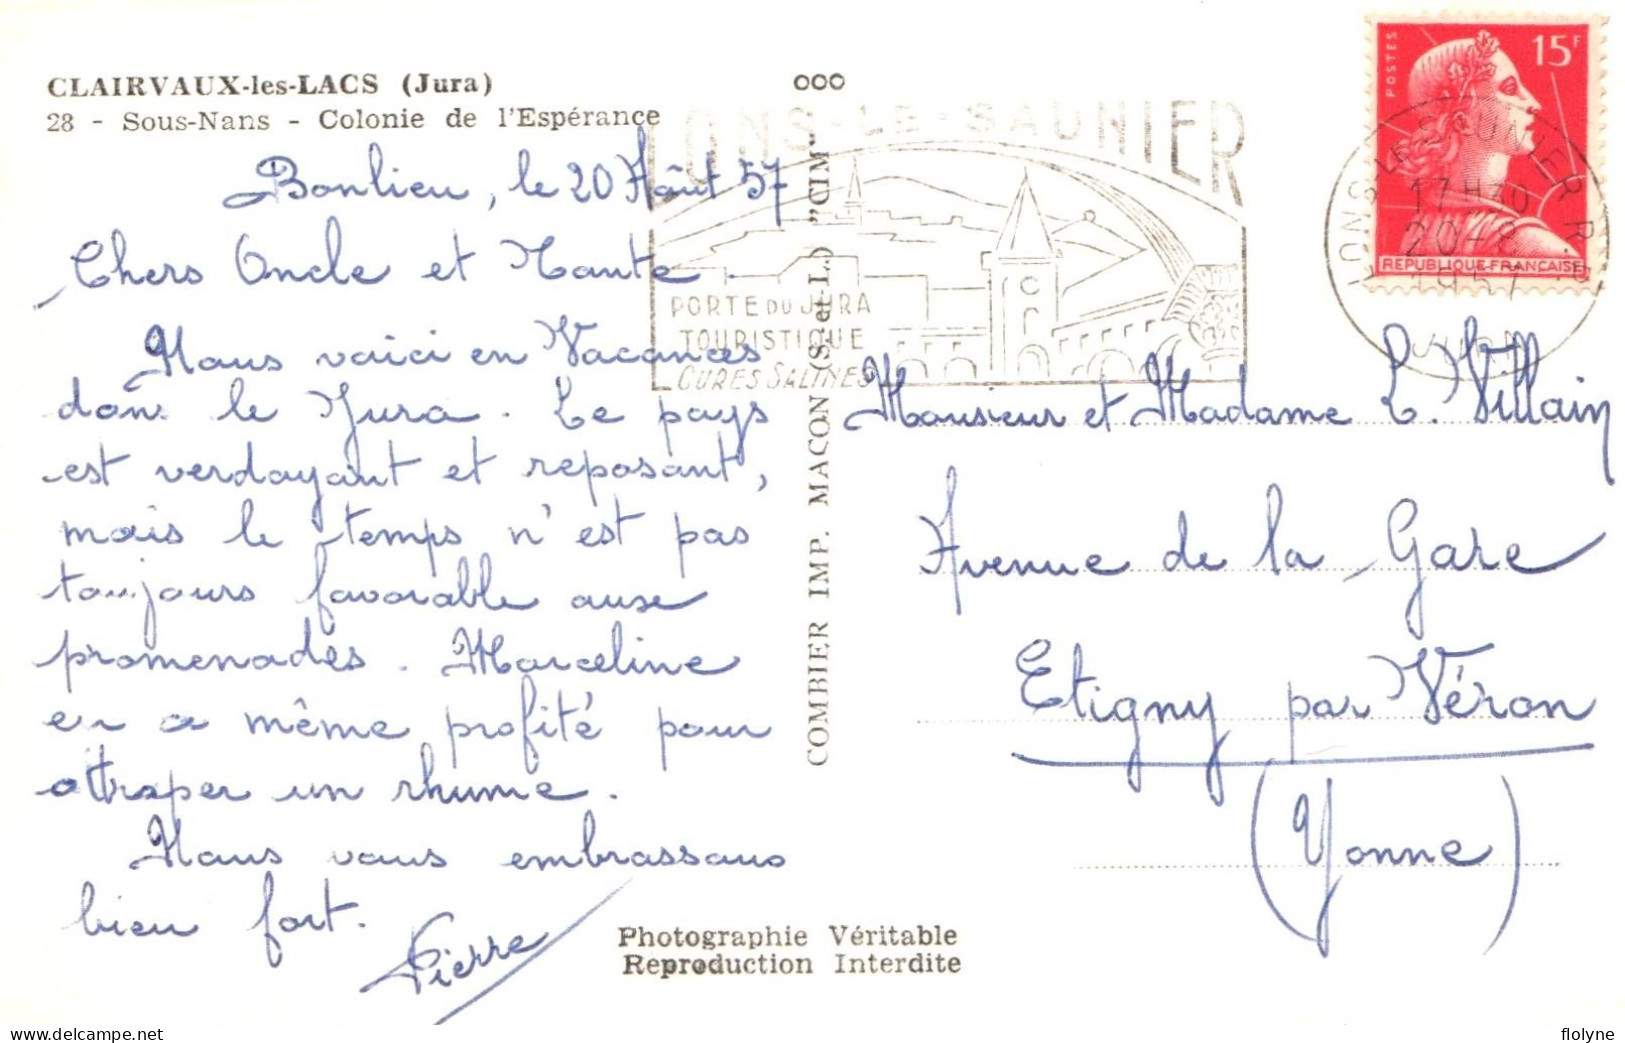 CLAIRVAUX-les-LACS (Jura)
28 - Sous-Nans - Colonie de l'Espérance
Bonlieu, le 20 Août 57
Chers Oncle et Tante.
Nous voici en Vacances
dans le Jura. Le pays
est verdoyant et reposant,
mais le temps n'est pas
toujours favorable aux
promenades. Marceline
en a même profité pour
attraper un rhume.
Nous vous embrassons
bien fort.
Pierre
ooo
COMBIER IMP. MACON (S.-et-L.) "CIM"
LONS-LE-SAUNIER
PORTE DU JURA
TOURISTIQUE
CURES SALINES
POSTES
15F
REPUBLIQUE-FRANÇAISE
LONS LE SAUNIER R.P.
17H30
20-8
1957
JURA
Monsieur et Madame L. Villain
Avenue de la Gare
Etigny par Véron
(Yonne)
Photographie Véritable
Reproduction Interdite
delcampe.net
flolyne